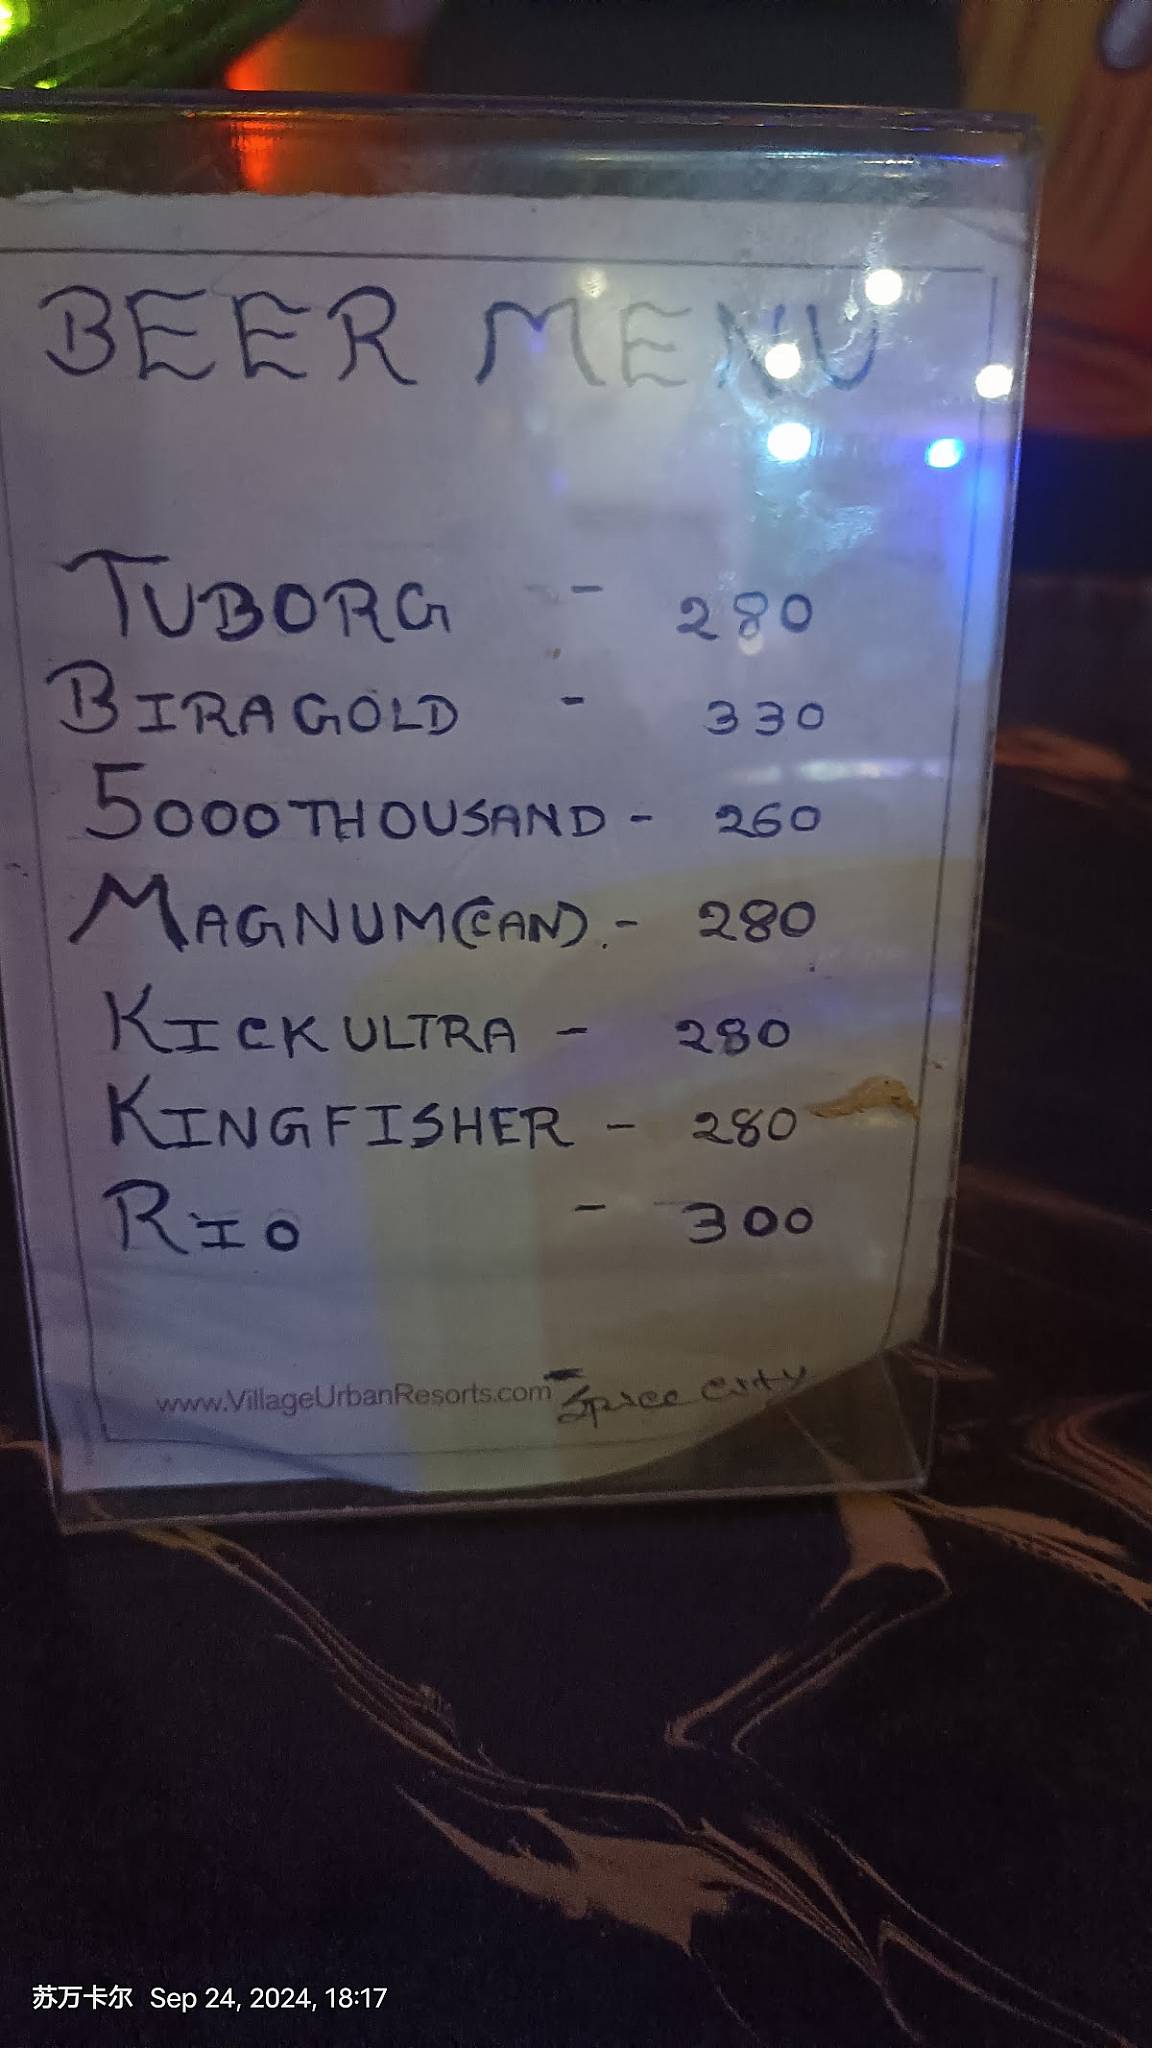 BEER MENU
TUBORG - 280
BIRA GOLD - 330
5000 THOUSAND - 260
MAGNUM (CAN). - 280
KICK ULTRA - 280
KINGFISHER - 280
RIO - 300
www.VillageUrbanResorts.com Spice City
苏万卡尔 Sep 24, 2024, 18:17